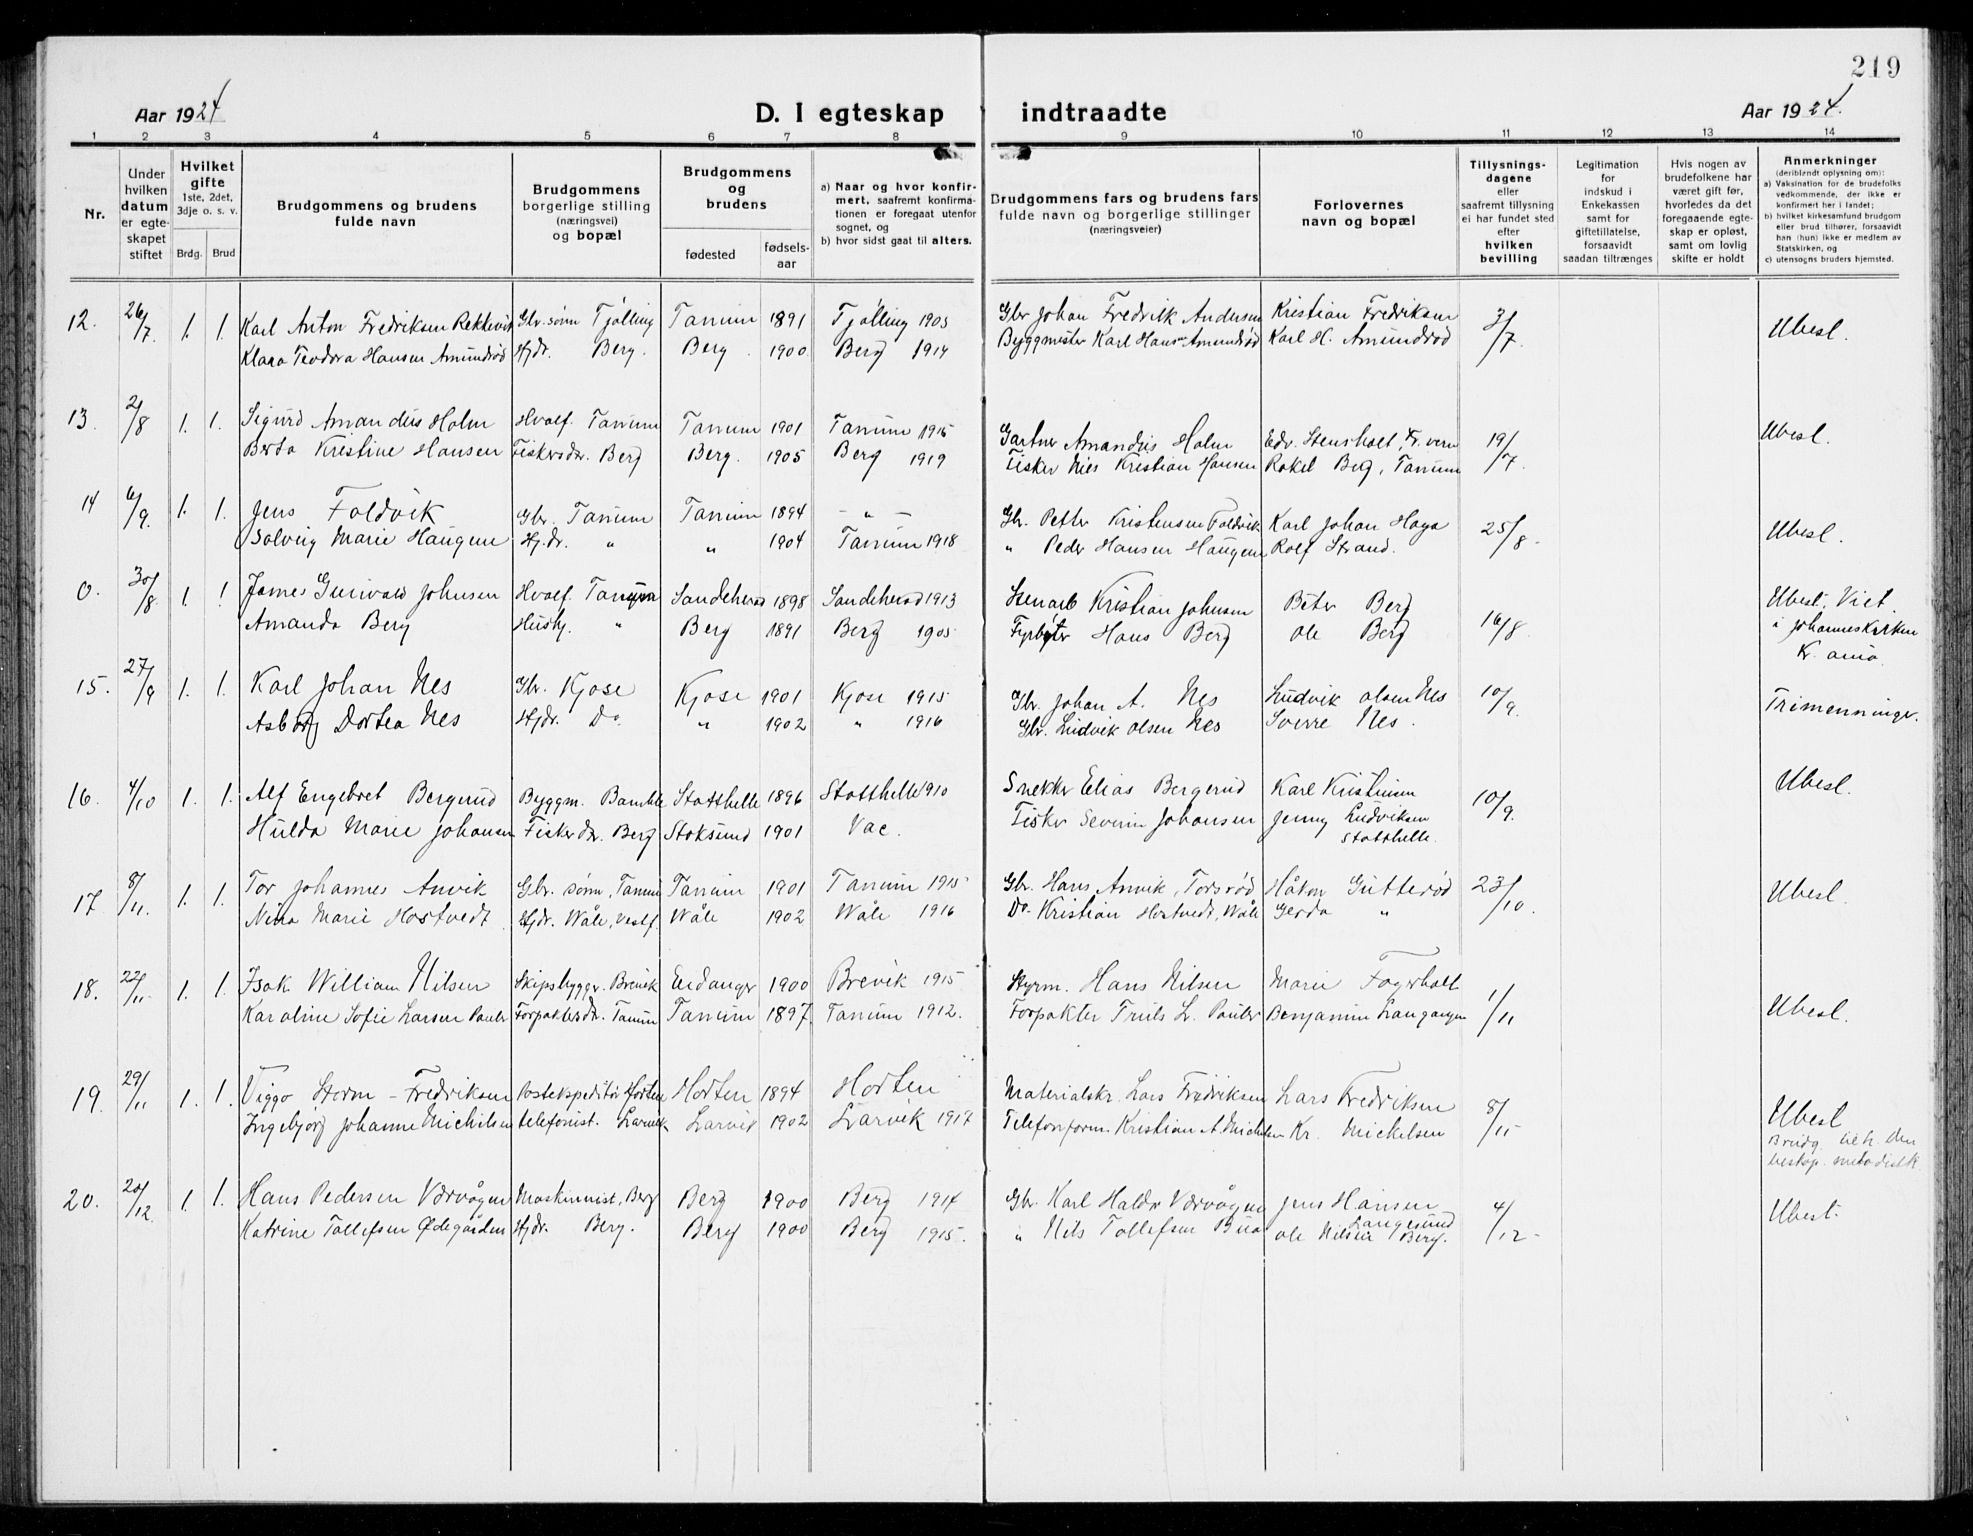 219
Aar 1924 D. I egteskap indtraadte Aar 1924.
1 2 3 4 5 6 7 8 9 10 11 12 13 14
Nr.
Under hvilken datum er egteskapet stiftet
Hvilket gifte 1ste, 2det, 3dje o. s. v.
Brdg. Brud
Brudgommens og brudens fulde navn
Brudgommens borgerlige stilling (næringsvei) og bopæl
Brudgommens og brudens
fødested fødselsaar
a) Naar og hvor konfirmert, saafremt konfirmationen er foregaat utenfor sognet, og
b) hvor sidst gaat til alters.
Brudgommens fars og brudens fars fulde navn og borgerlige stillinger (næringsveier)
Forlovernes navn og bopæl
Tillysningsdagene eller saafremt tillysning ei har fundet sted efter hvilken bevilling
Legitimation for indskud i Enkekassen samt for giftetillatelse, forsaavidt saadan tiltrænges
Hvis nogen av brudefolkene har været gift før, hvorledes da det foregaaende egteskap er opløst, samt om lovlig skifte er holdt
Anmerkninger (deriblandt oplysning om):
a) Vaksination for de brudefolks vedkommende, der ikke er konfirmert her i landet;
b) hvilket kirkesamfund brudgom eller brud tilhører, forsaavidt han (hun) ikke er medlem av Statskirken, og
c) utensogns bruders hjemsted.
12. 26/7. 1. 1. Karl Anton Fredriksen Rekkevik Gbr. sønn Tjølling Tanum 1891 Tjølling 1905 Gbr Johan Fredrik Andersen Kristian Fredriksen 3/7. Ubesl.
Klara Teodora Hansen Amundrød Hjdr. Berg. Berg. 1900 Berg 1914 Byggmester Karl Hans. Amundrød Karl H. Amundrød
13. 2/8 1. 1. Sigurd Amandus Holm Hvalf. Tanum Tanum 1901 Tanum 1915 Gartner Amandus Holm Edv. Stensholt, Fr.vern 19/7. Ubesl.
Berta Kristine Hansen Fiskersdr. Berg Berg. 1905 Berg 1919 Fisker Nies Kristian Hansen Rakel Berg, Tanum
14 6/9. 1. 1. Jens Foldvik Gbr. Tanum Tanum 1894 - " - Gbr. Petter Kristensen Foldvik Karl Johan Haga 25/8. Ubesl.
Solveig Marie Haugene Hjdr. " " 1904 Tanum 1918 " Peder Hansen Haugene Rolf Strand.
0. 30/8. 1. 1. James Gunvald Johnsen Hvalf. Tanum Sandeherad 1898 Sandeherad 1913 Stenarb Kristian Johnsen Peter Berg 16/8. Ubesl. Viet.
Amanda Berg Hush. " Berg 1891 Berg 1905 Fyrbøter Hans Berg Ole Berg i Johanneskirken
Kr.ania.
15. 27/9 1. 1. Karl Johan Nes Gbr. Kjose Kjose 1901 Kjose 1915 Gbr. Johan A. Nes Ludvik Olsen Nes 10/9. Trimenninger.
Asborg Dortea Nes Hjdr. Do. " 1902 " 1916 Gbr. Ludvik Olsen Nes Sverre Nes.
16. 4/10 1. 1. Alf Engebret Bergerud Byggm. Bamble Statthelle 1896 Statthelle 1910 Snekker Elias Bergerud Karl Kristensen 10/9. Ubesl.
Hulda Marie Johansen Fiskerdr. Berg Stoksund 1901 Vac. Fisker Severin Johansen Jenny Ludviksen
Statthelle.
17. 8/11. 1. 1. Tor Johannes Anvik Gbr. sønn, Tanum Tanum 1901 Tanum 1915 Gbr. Hans Anvik, Torsrød Håkon Gutterød 23/10. Ubesl.
Nina Marie Hostvedt Hjdr. Wåle, Vestf. Wåle 1902 Wåle 1916 Do. Kristian Hostvedt, Wåle Gerda "
18. 22/11 1. 1. Isak William Nilsen Skipsbygger. Brevik Eidanger 1900 Brevik 1915 Styrm. Hans Nilsen Marie Fagerholt 1/11 Ubesl.
Karoline Sofie Larsen Pauler Forpaktersdr. Tanum Tanum 1897 Tanum 1912. Forpakter Truls L. Pauler Benjamin Langangen
19. 29/11 1. 1. Viggo Storm-Fredriksen Postekspeditør Horten Horten 1894 Horten Materialskr. Lars Fredriksen Lars Fredriksen 8/11 Ubesl
Ingebjørg Johanne Mickelsen telefonist. Larvik Larvik 1902 Larvik 1917 Telefonform. Kristian A. Mickelsen Kr. Mickelsen
Brudg. tilh. den
biskop. metodistk.
20. 20/12. 1. 1. Hans Pedersen Værvågen Maskinnist, Berg Berg 1900 Berg 1914 Gbr. Karl Haldor Værvågen Jens Hansen 4/12. Ubesl.
Langesund
Katrine Tollefsen Ødegården Hjdr. Berg. Berg 1900 Berg 1915. " Nils Tollefsen Bua Ole Nilsen Berg.